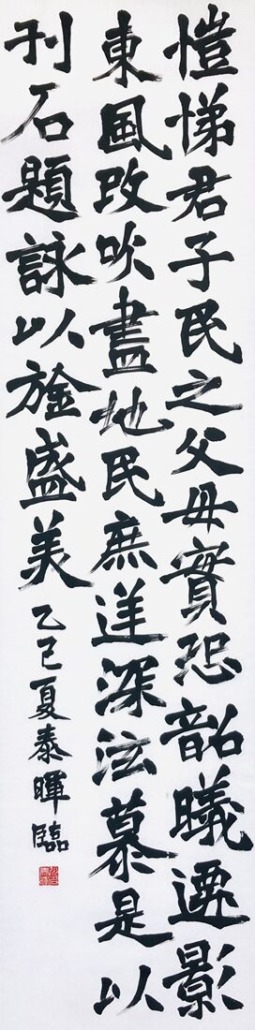 愷悌君子民之父母實恐韶曦遷影
東風改吹盡地民庶逆深泫慕是以
刊石題詠以旌盛美乙巳夏泰暉臨